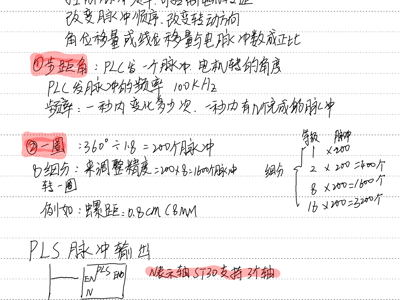 改变脉冲顺序,改变转动方向
角位移量或线位移量与电脉冲数成正比
①步距角:PLC发一个脉冲 电机转的角度
PLC发脉冲的频率 100KHz
频率:一秒内变化多少次,一秒内有几个完成的脉冲
②一圈:360°÷1.8=200个脉冲
B细分:来调整精度=200×8=1600个脉冲
转一圈
细分
等数 脉冲
1 ×200
2 ×200=400个
8 ×200=1600个
16 ×200=3200个
例如:螺距:0.8cm(8mm
PLS 脉冲输出
PLS
EN END
N
N表示轴 ST30支持3个轴